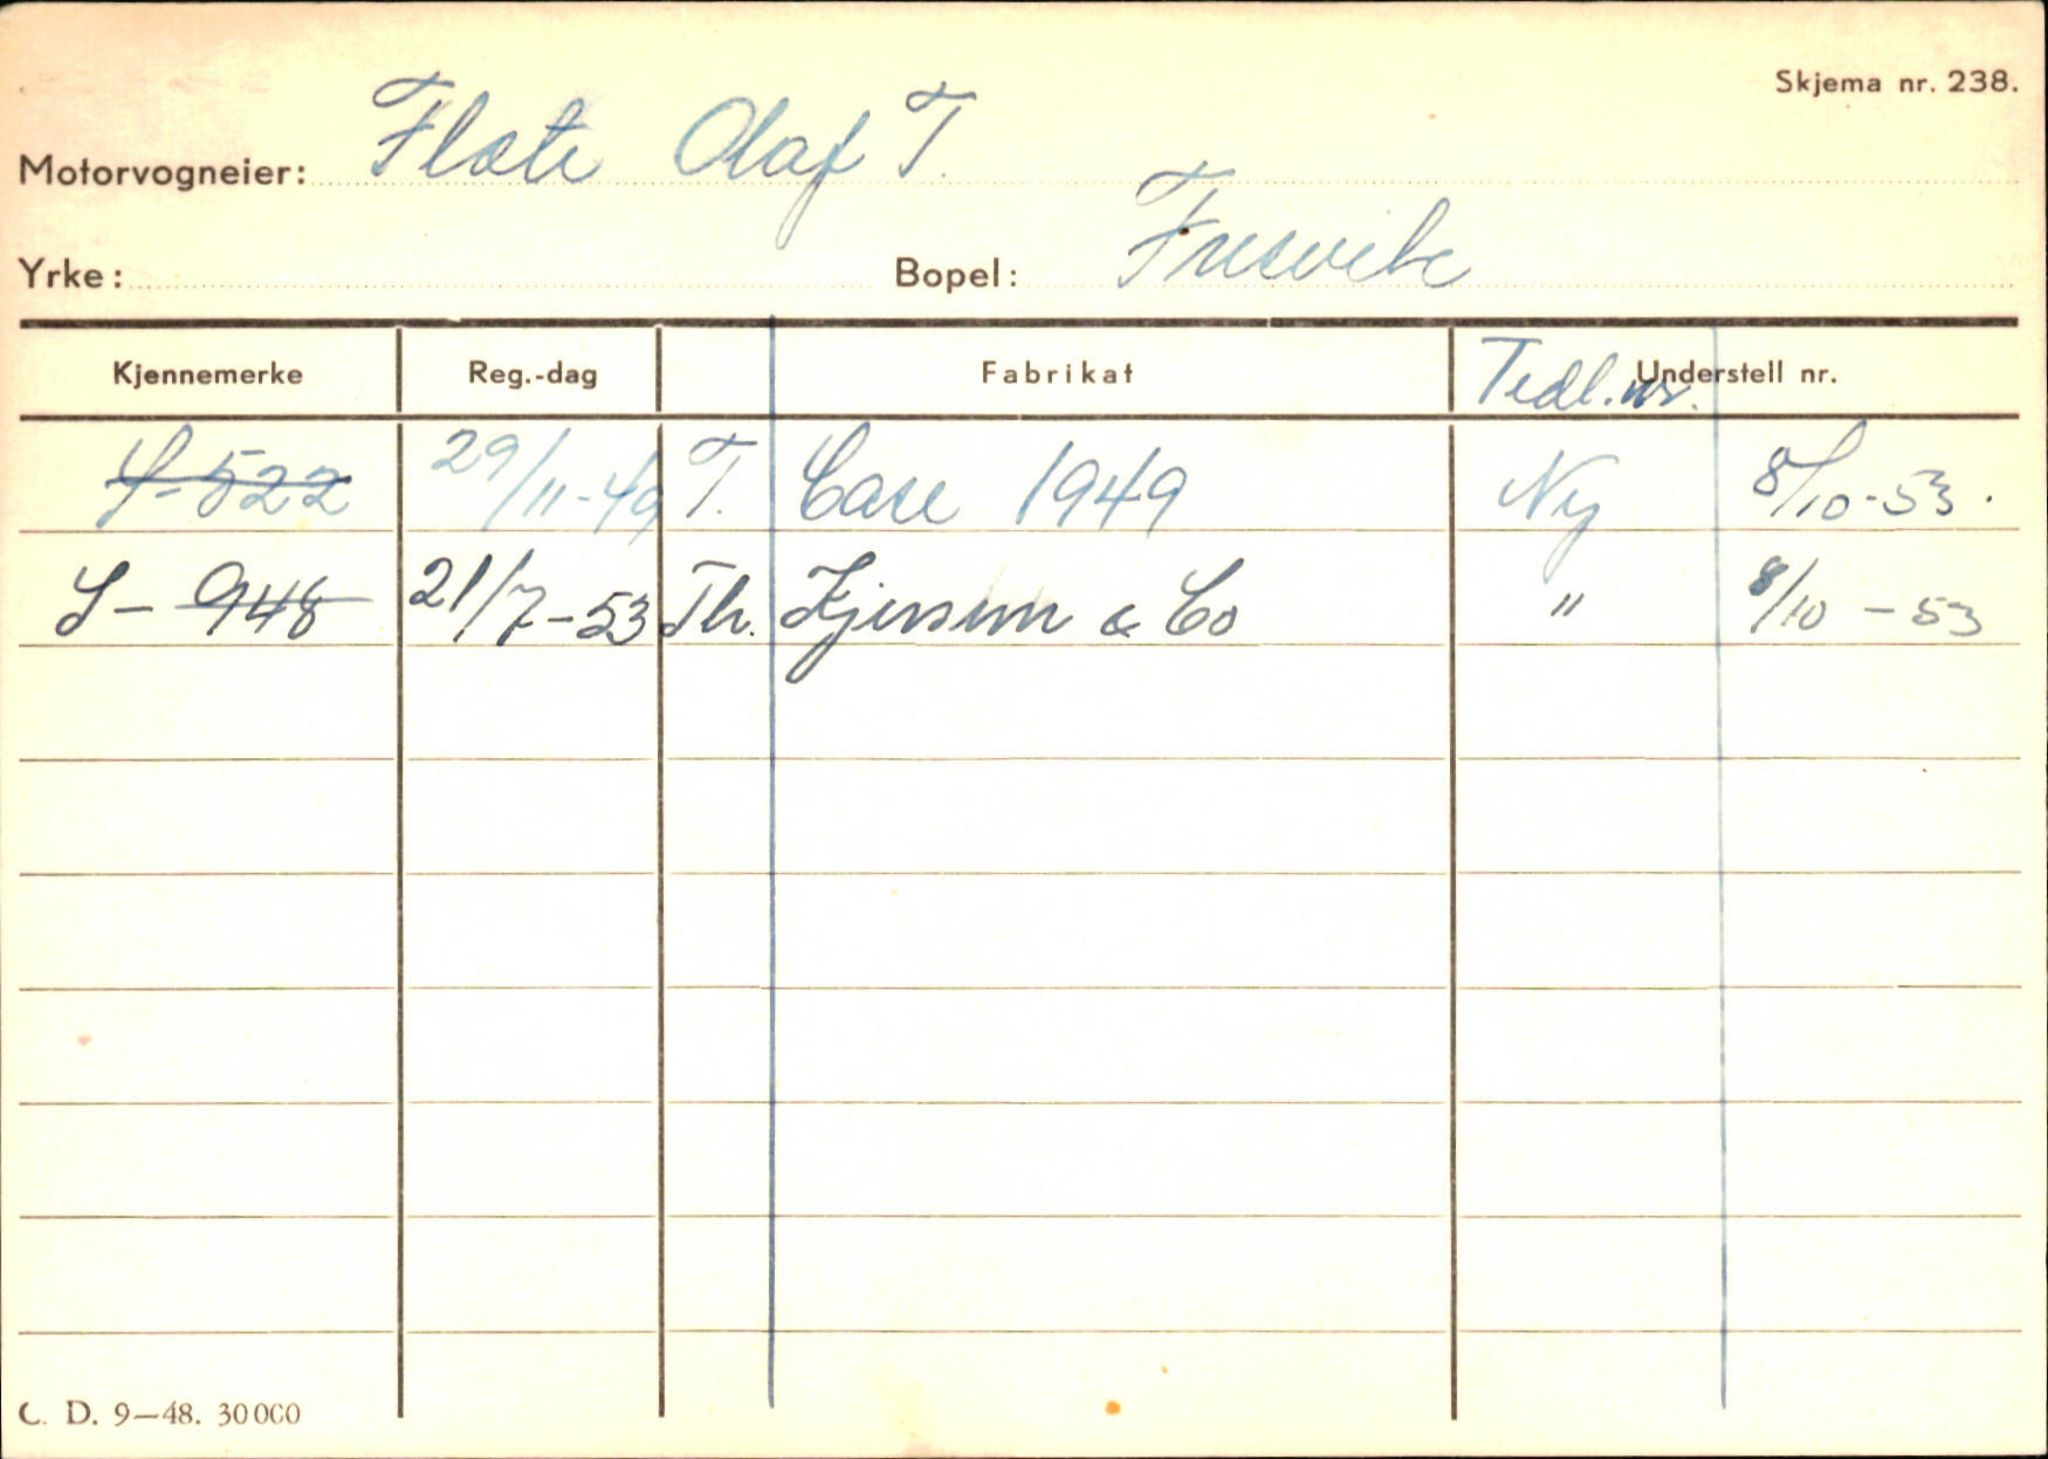 Skjema nr. 238.
Motorvogneier: Flete Olaf T.
Yrke: Bopel: Fresvik
Kjennemerke Reg.-dag Fabrikat Tidl. nr. Understell nr.
S-522 29/11-49 T. Case 1949 Ny 8/10-53.
S-948 21/7-53 Th. & Co " 8/10-53
C. D. 9—48. 30000